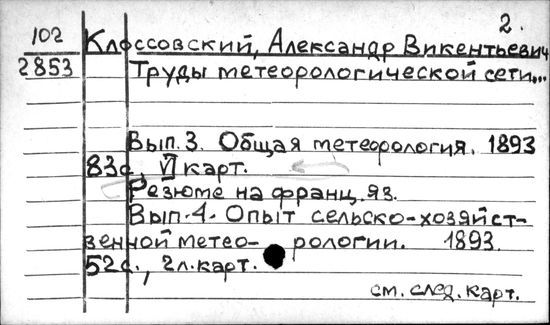 2.
102 Клоссовский, Александр Викентьевич
2853 Труды метеорологической сети...
Вып.3. Общая метеорология. 1893
83с., VI карт.
Резюме на франц. яз.
Вып.4. Опыт сельско-хозяйст-
венной метео- рологии. 1893.
52с., 2л.карт.
см. след. карт.